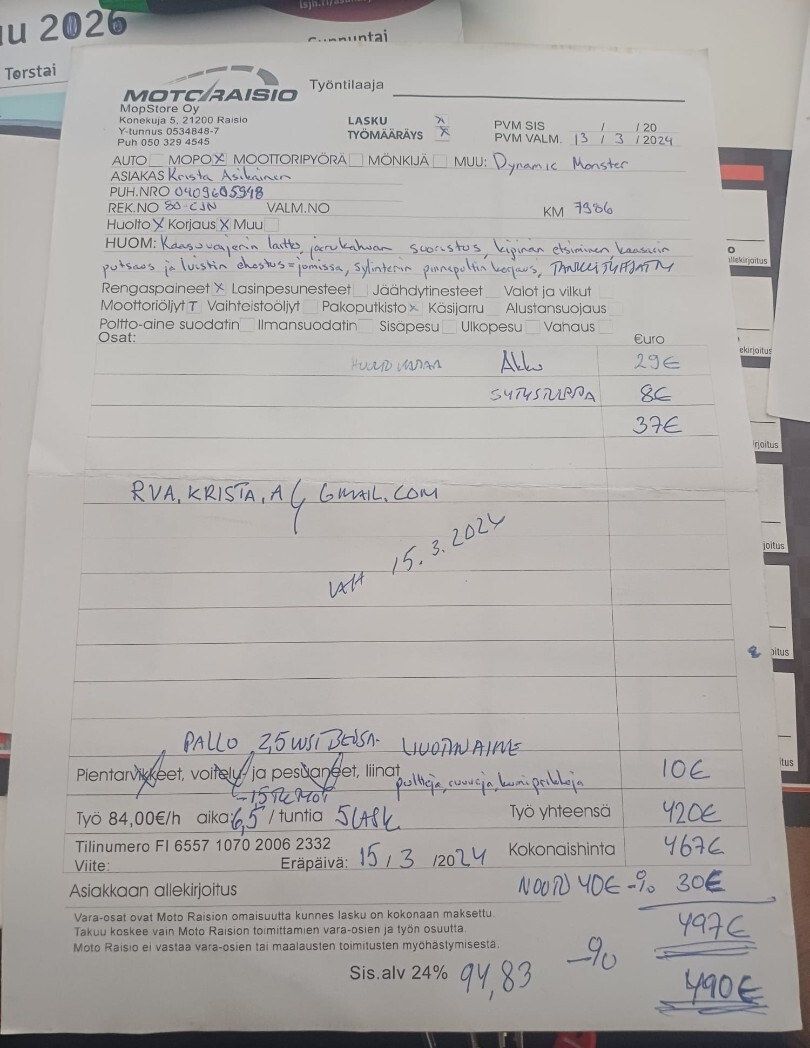 uu 2026
Torstai
Sunnuntai
MOTORAISIO
Työntilaaja
MopStore Oy
Konekuja 5, 21200 Raisio
Y-tunnus 0534848-7
Puh 050 329 4545
LASKU x
TYÖMÄÄRÄYS x
PVM SIS / /20
PVM VALM. 13 / 3 /2024
AUTO MOPO x MOOTTORIPYÖRÄ MÖNKIJÄ MUU: Dynamic Monster
ASIAKAS Krista Asikainen
PUH.NRO 0409605948
REK.NO 80-CJN VALM.NO KM 7986
Huolto x Korjaus x Muu
HUOM: Kaasuvaijerin laitto, jarrukahvan suoristus, kipinän etsiminen, kaasarin
putsaus ja luistin ehostus=jumissa, sylinterin pinnapultin korjaus,
Rengaspaineet x Lasinpesunesteet Jäähdytinesteet Valot ja vilkut
Moottoriöljyt T Vaihteistoöljyt Pakoputkisto x Käsijarru Alustansuojaus
Poltto-aine suodatin Ilmansuodatin Sisäpesu Ulkopesu Vahaus
Osat: €uro
HUOLTOVAPAA Akku 29€
SYTYSTULPPA 8€
37€
RVA.KRISTA.A@GMAIL.COM
15.3.2024
PALLO 2,5 BENSA LIUOTINAINE
Pientarvikkeet, voitelu- ja pesuaineet, liinat pultteja, ruuveja, kumiprikkoja 10€
Työ 84,00€/h aika: 6,5 / tuntia 5 LASK Työ yhteensä 420€
Tilinumero FI 6557 1070 2006 2332 Kokonaishinta 467€
Viite: Eräpäivä: 15 / 3 /2024
Asiakkaan allekirjoitus NOUTO 40€ -% 30€
Vara-osat ovat Moto Raision omaisuutta kunnes lasku on kokonaan maksettu.
Takuu koskee vain Moto Raision toimittamien vara-osien ja työn osuutta.
Moto Raisio ei vastaa vara-osien tai maalausten toimitusten myöhästymisestä.
497€
-%
Sis.alv 24% 94,83
490€
allekirjoitus
ekirjoitus
rjoitus
joitus
oitus
itus